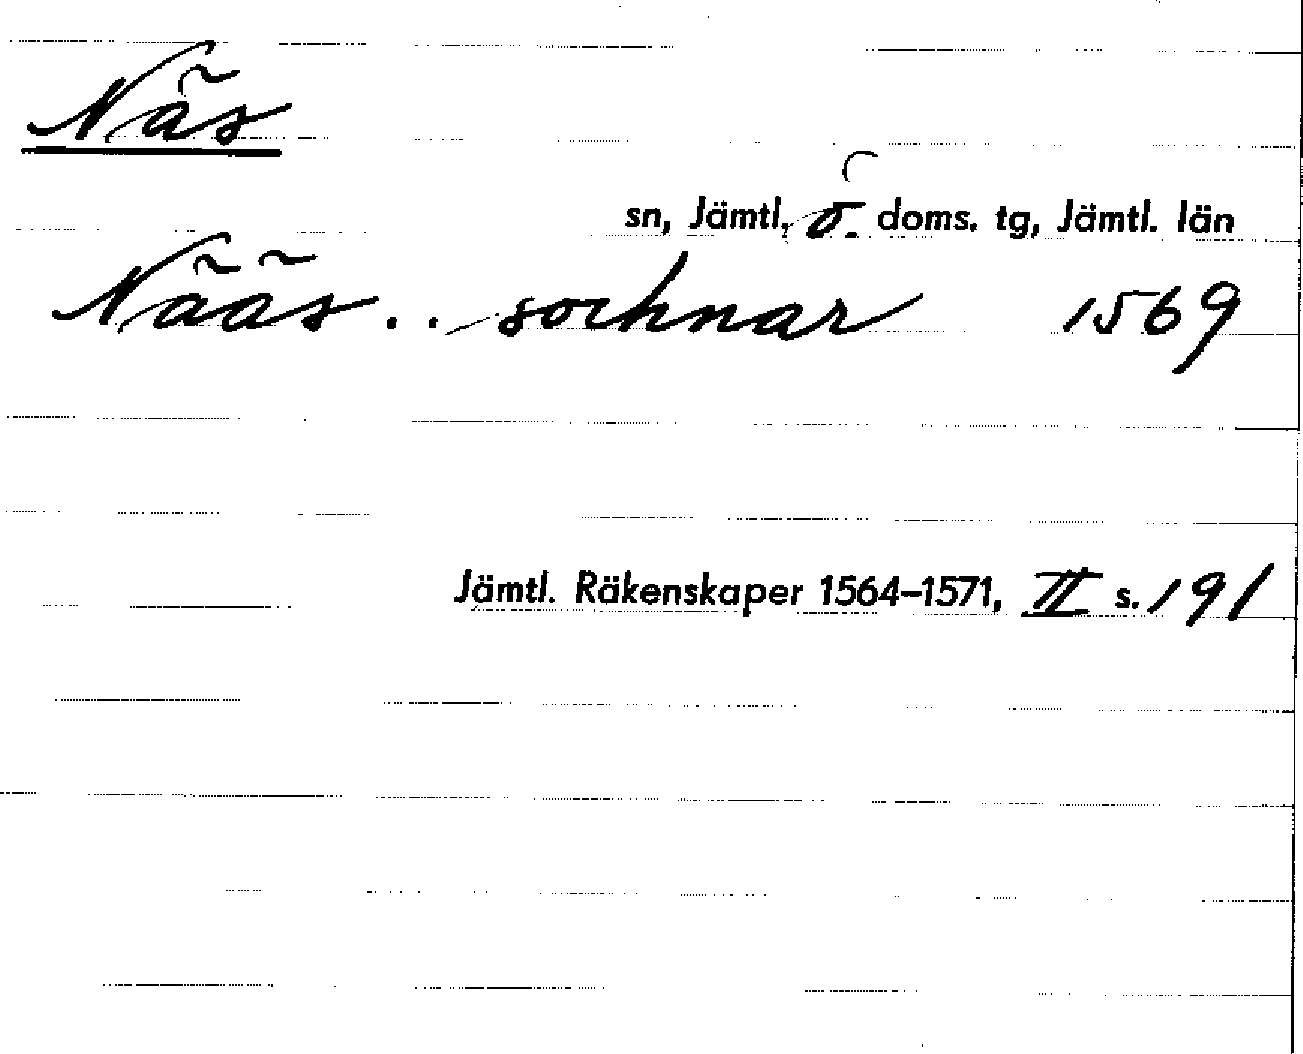 Näs
sn, Jämtl, ö. doms. tg, Jämtl. län
Nääs .. sochnar 1569
Jämtl. Räkenskaper 1564–1571, II s. 191